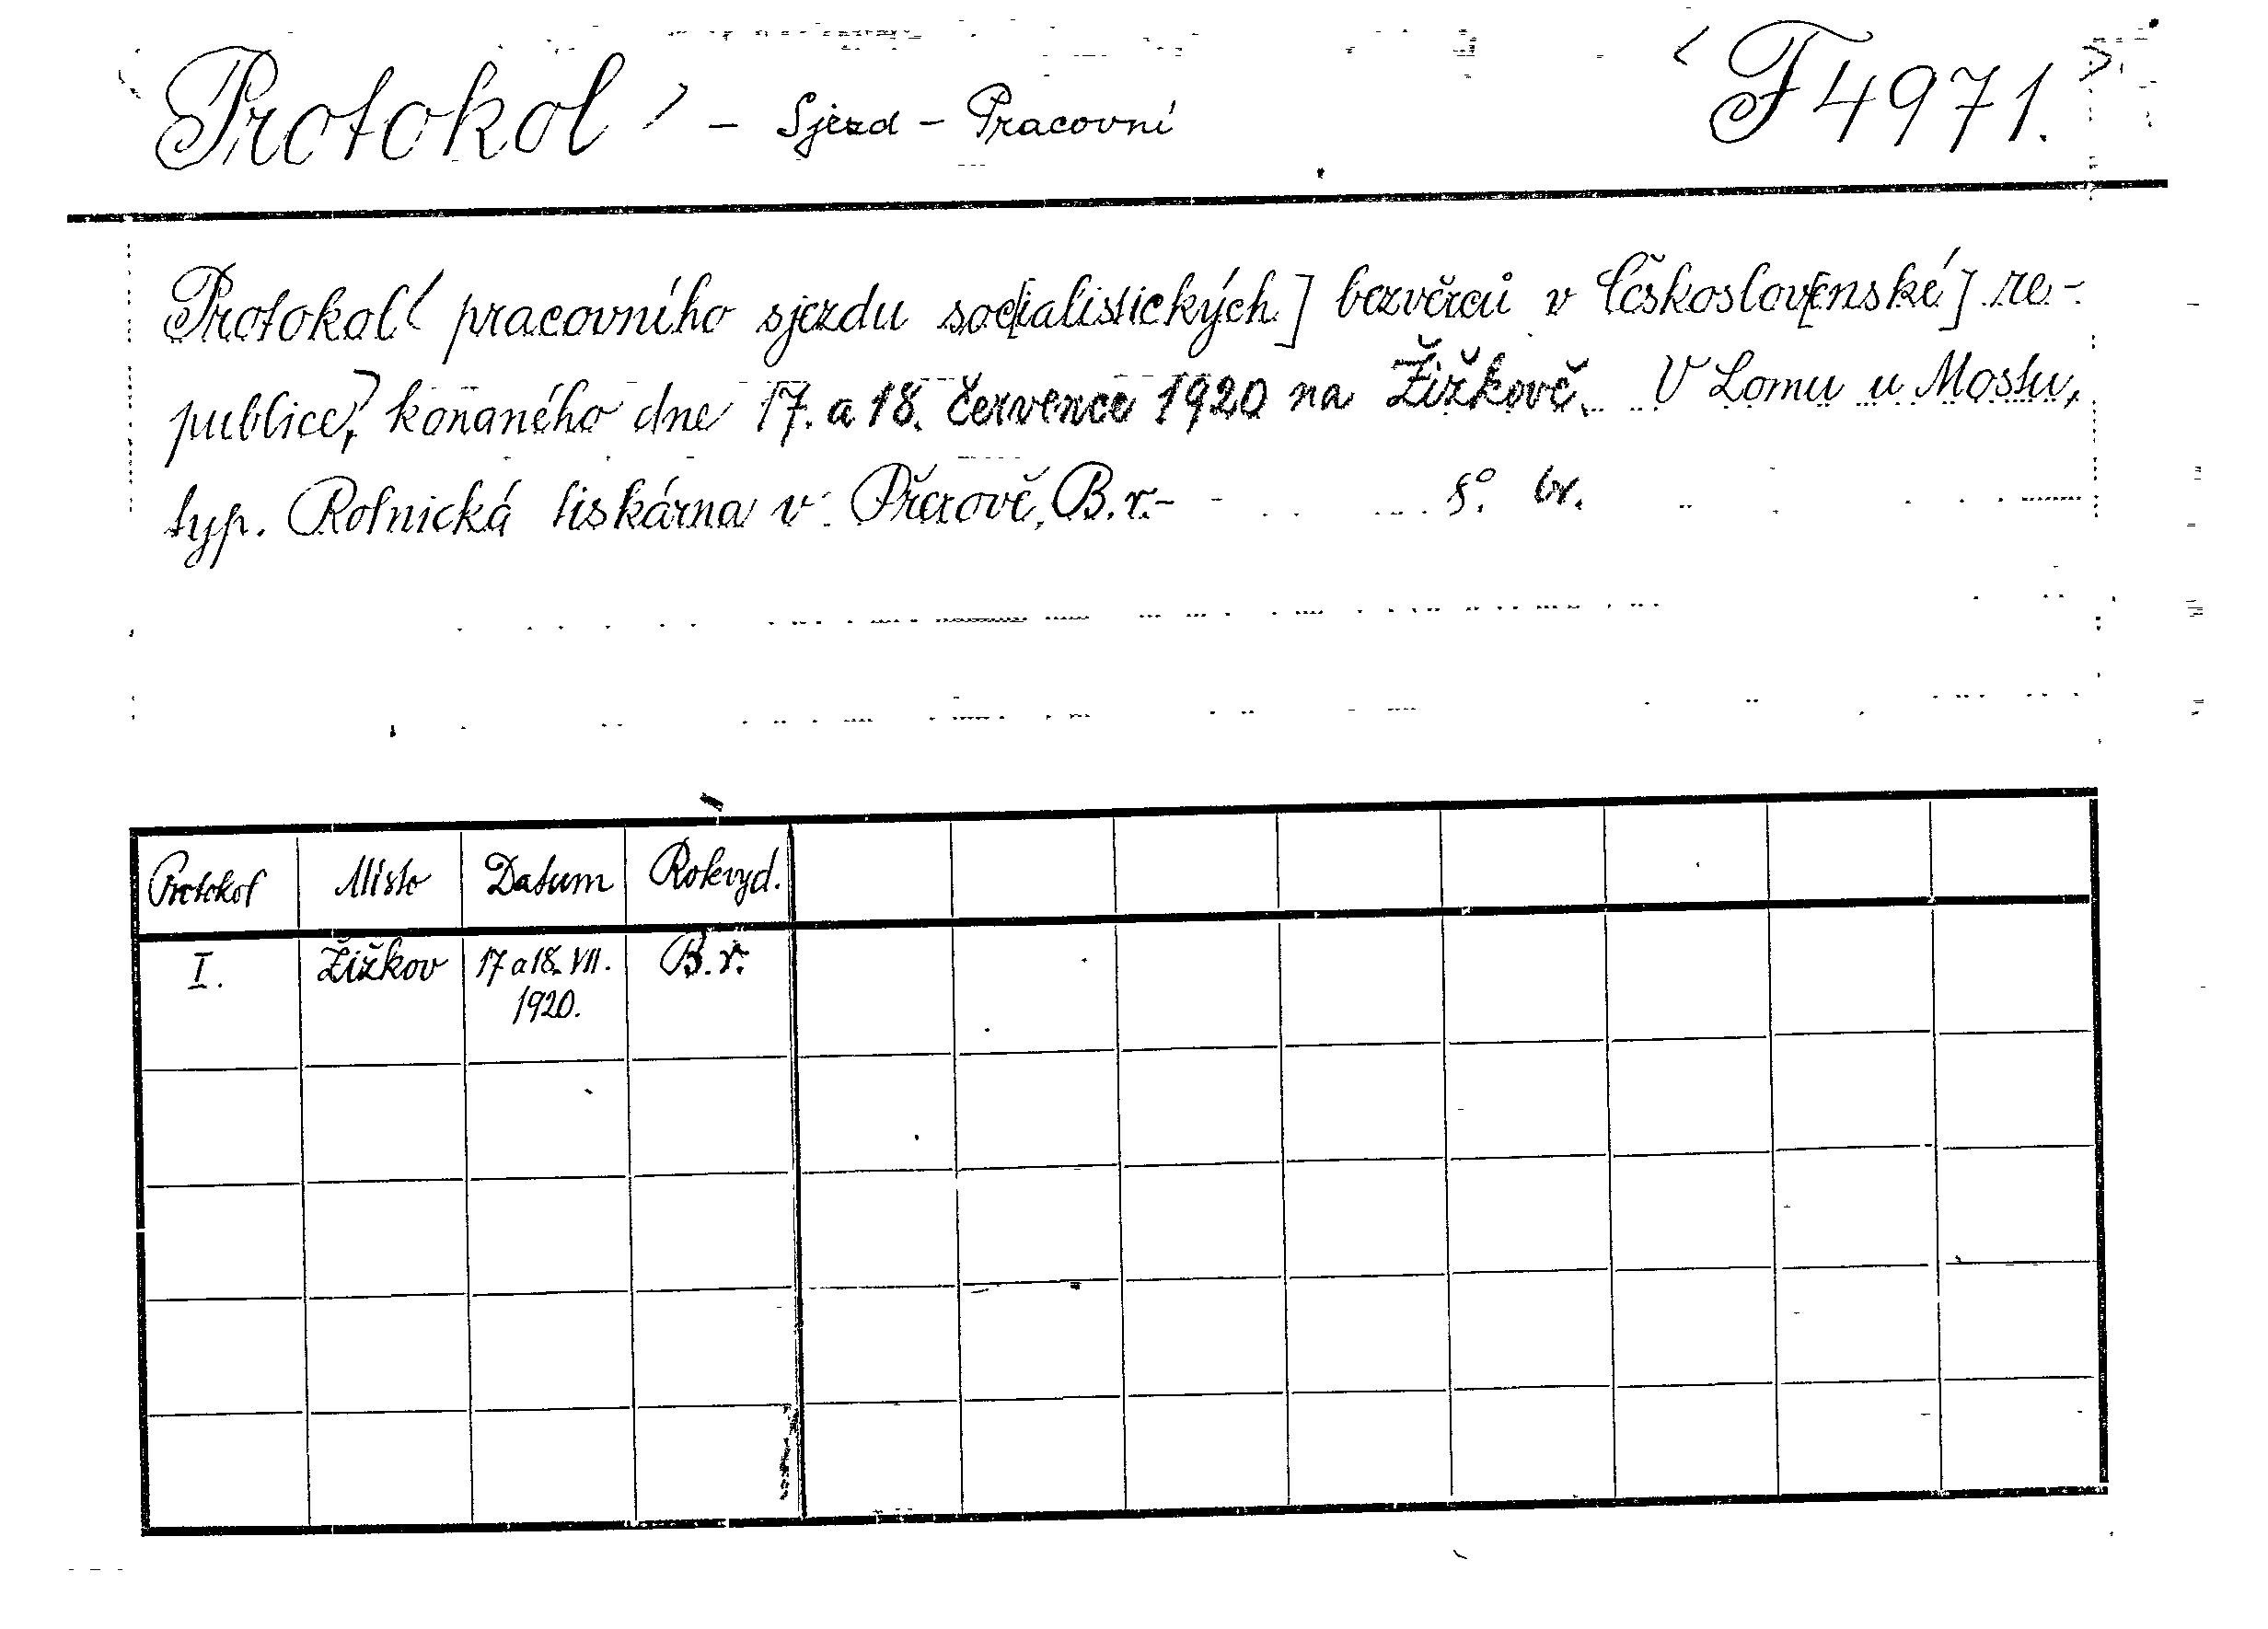 Protokol - Sjezd - Pracovní F 4971.
Protokol pracovního sjezdu soc[ialistických] bezvěrců v Českoslov[enské] re-
publice, konaného dne 17. a 18. července 1920 na Žižkově. V Lomu u Mostu,
typ. Rolnická tiskárna v Přerově, B. r.- 8°. br.
Protokol Místo Datum Rok vyd.
I. Žižkov 17 a 18. VII. B. r.
1920.